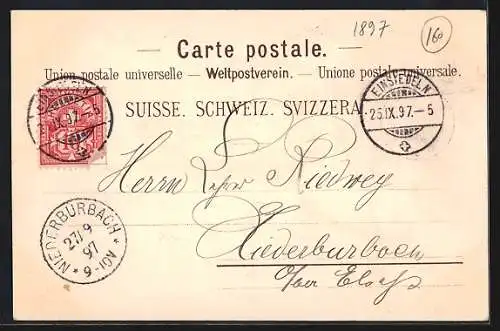 1897
160
Carte postale.
Union postale universelle. — Weltpostverein. — Unione postale universale.
SUISSE. SCHWEIZ. SVIZZERA.
EINSIEDELN
25.IX.97.-5
Herrn Riedwey
NIEDERBURBACH
27/9
97
9-10V
Niederburbach
Ober Elsaß